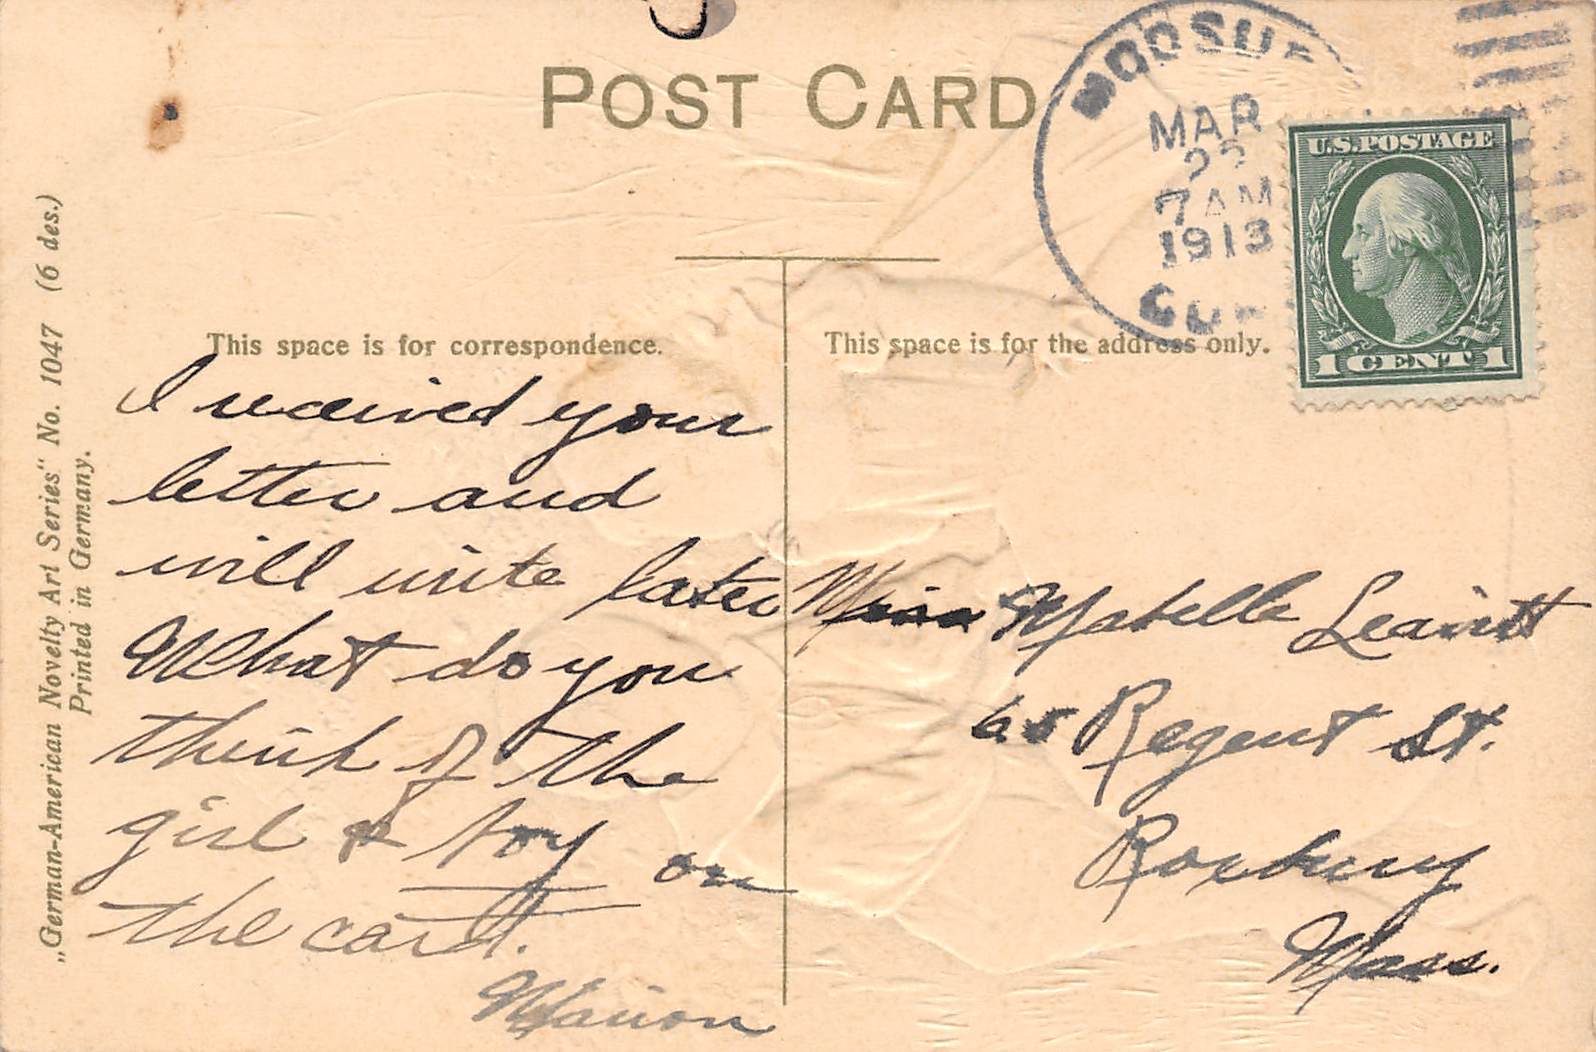 POST CARD
MAR
7 AM
1913
U.S. POSTAGE
1 CENT 1
„German-American Novelty Art Series" No. 1047 (6 des.)
Printed in Germany.
This space is for correspondence.
This space is for the address only.
I received your
letter and
will write later
What do you
think of the
girl & boy on
the card.
Marion
Miss Mabelle Leavitt
65 Regent St.
Roxbury
Mass.